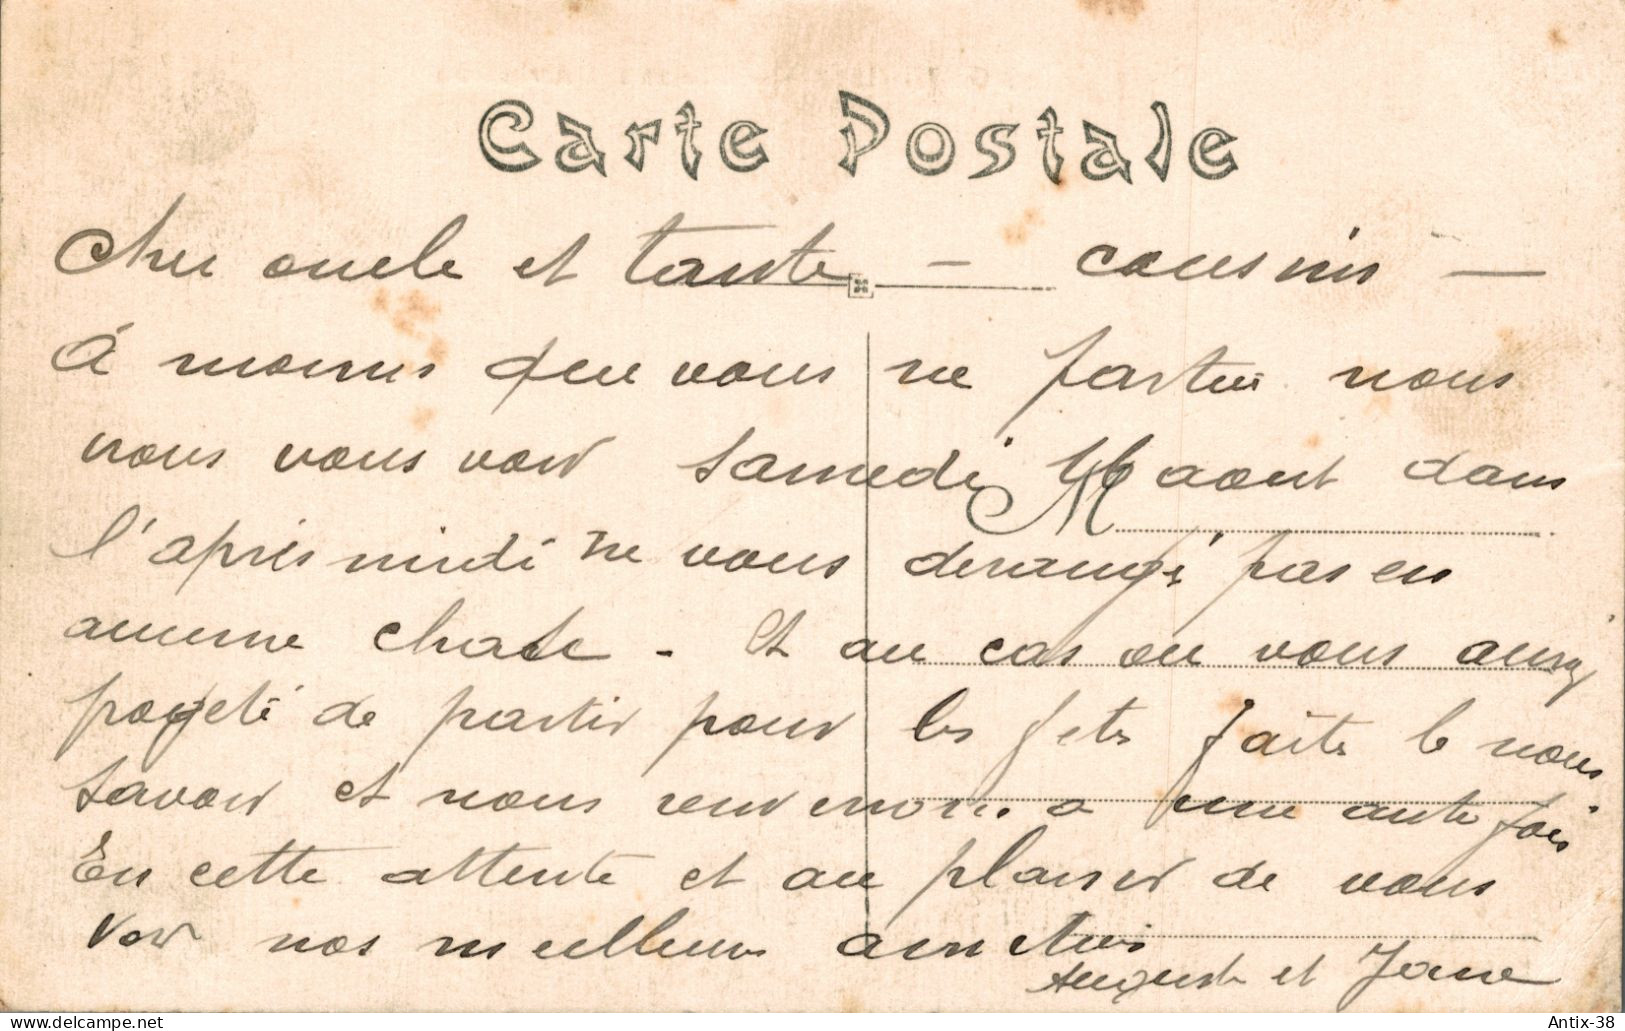 Carte Postale
Cher oncle et tante - cousins -
À moins que vous ne partiez nous
irons vous voir samedi 16 aout dans
l'après midi ne vous derangé pas en
aucune chose - Et au cas ou vous auriez
projeté de partir pour les fetes faite le nous
savoir et nous reviendrons a une autre fois
En cette attente et au plaisir de vous
voir nos meilleurs amitiés
Auguste et Jane
delcampe.net
Antix-38